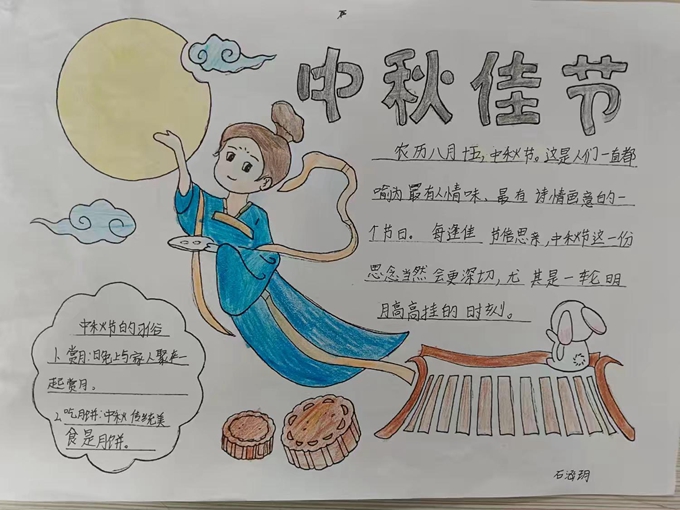 中秋佳节
农历八月十五,中秋节。这是人们一直都
喻为最有人情味、最有诗情画意的一
个节日。每逢佳节倍思亲,中秋节这一份
思念当然会更深切,尤其是一轮明
月高高挂的时刻。
中秋节的习俗
1、赏月:日晚上与家人聚在一
起赏月。
2、吃月饼:中秋传统美
食是月饼。